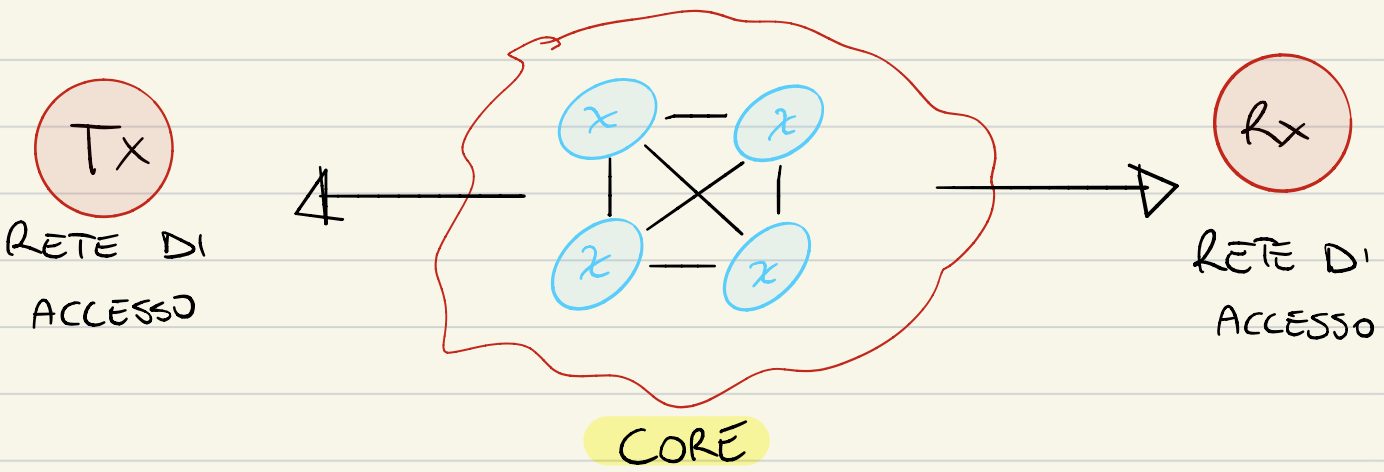 Tx
RETE DI
ACCESSO
x
x
x
x
CORE
Rx
RETE DI
ACCESSO